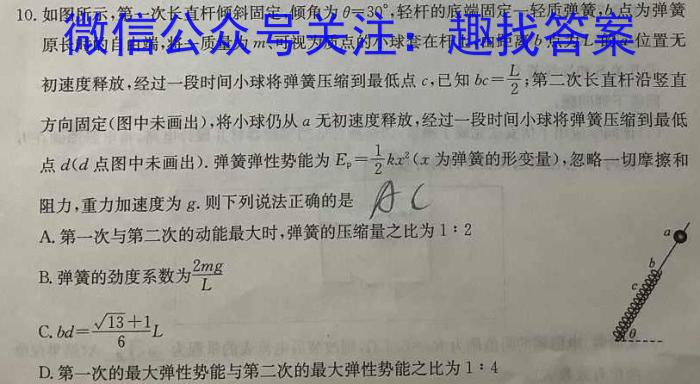 10. 如图所示,第一次长直杆倾斜固定,倾角为θ=30°,轻杆的底端固定一轻质弹簧,b点为弹簧
微信公众号关注：趣找答案
原长时的自由端,将一质量为m、可视为质点的小球套在杆上 距离b 位置无
初速度释放,经过一段时间小球将弹簧压缩到最低点c,已知bc=L/2;第二次长直杆沿竖直
方向固定(图中未画出),将小球仍从a无初速度释放,经过一段时间小球将弹簧压缩到最低
点d(d点图中未画出).弹簧弹性势能为Eₚ=1/2kx²(x为弹簧的形变量),忽略一切摩擦和
阻力,重力加速度为g.则下列说法正确的是 AC
A. 第一次与第二次的动能最大时,弹簧的压缩量之比为1∶2
B. 弹簧的劲度系数为2mg/L
C. bd=(√13+1)/6 L
D. 第一次的最大弹性势能与第二次的最大弹性势能之比为1∶4
a
b
c
θ